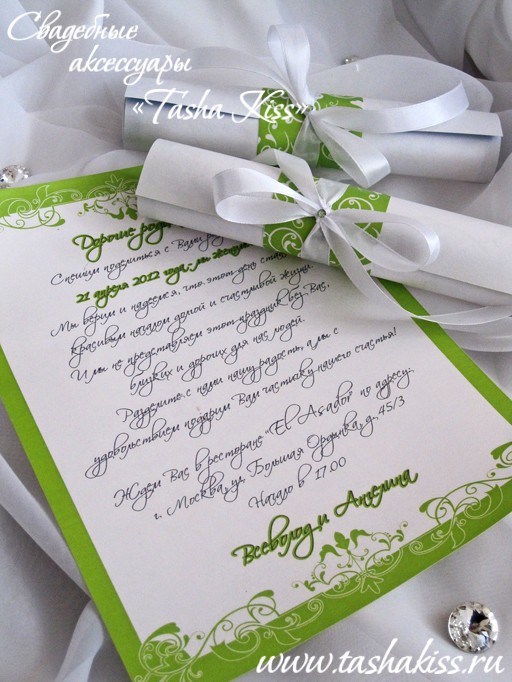 Свадебные
аксессуары
«Tasha Kiss»
Дорогие
Спешим поделиться с Вами
21 апреля 2012 года мы
Мы верим и надеемся, что этот день
красивым началом долгой и счастливой жизни.
И мы не представляем этот праздник без Вас,
близких и дорогих для нас людей.
Разделите с нами нашу радость, а мы с
удовольствием подарим Вам частичку нашего счастья!
Ждем Вас в ресторане "El Asador" по адресу:
г. Москва, ул. Большая Ордынка, д. 45/3
Начало в 17.00
Всеволод и Ангелина
www.tashakiss.ru